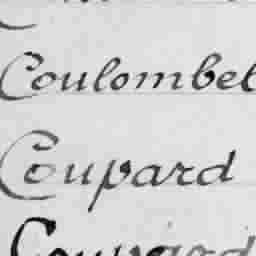 Coulombel
Coupard